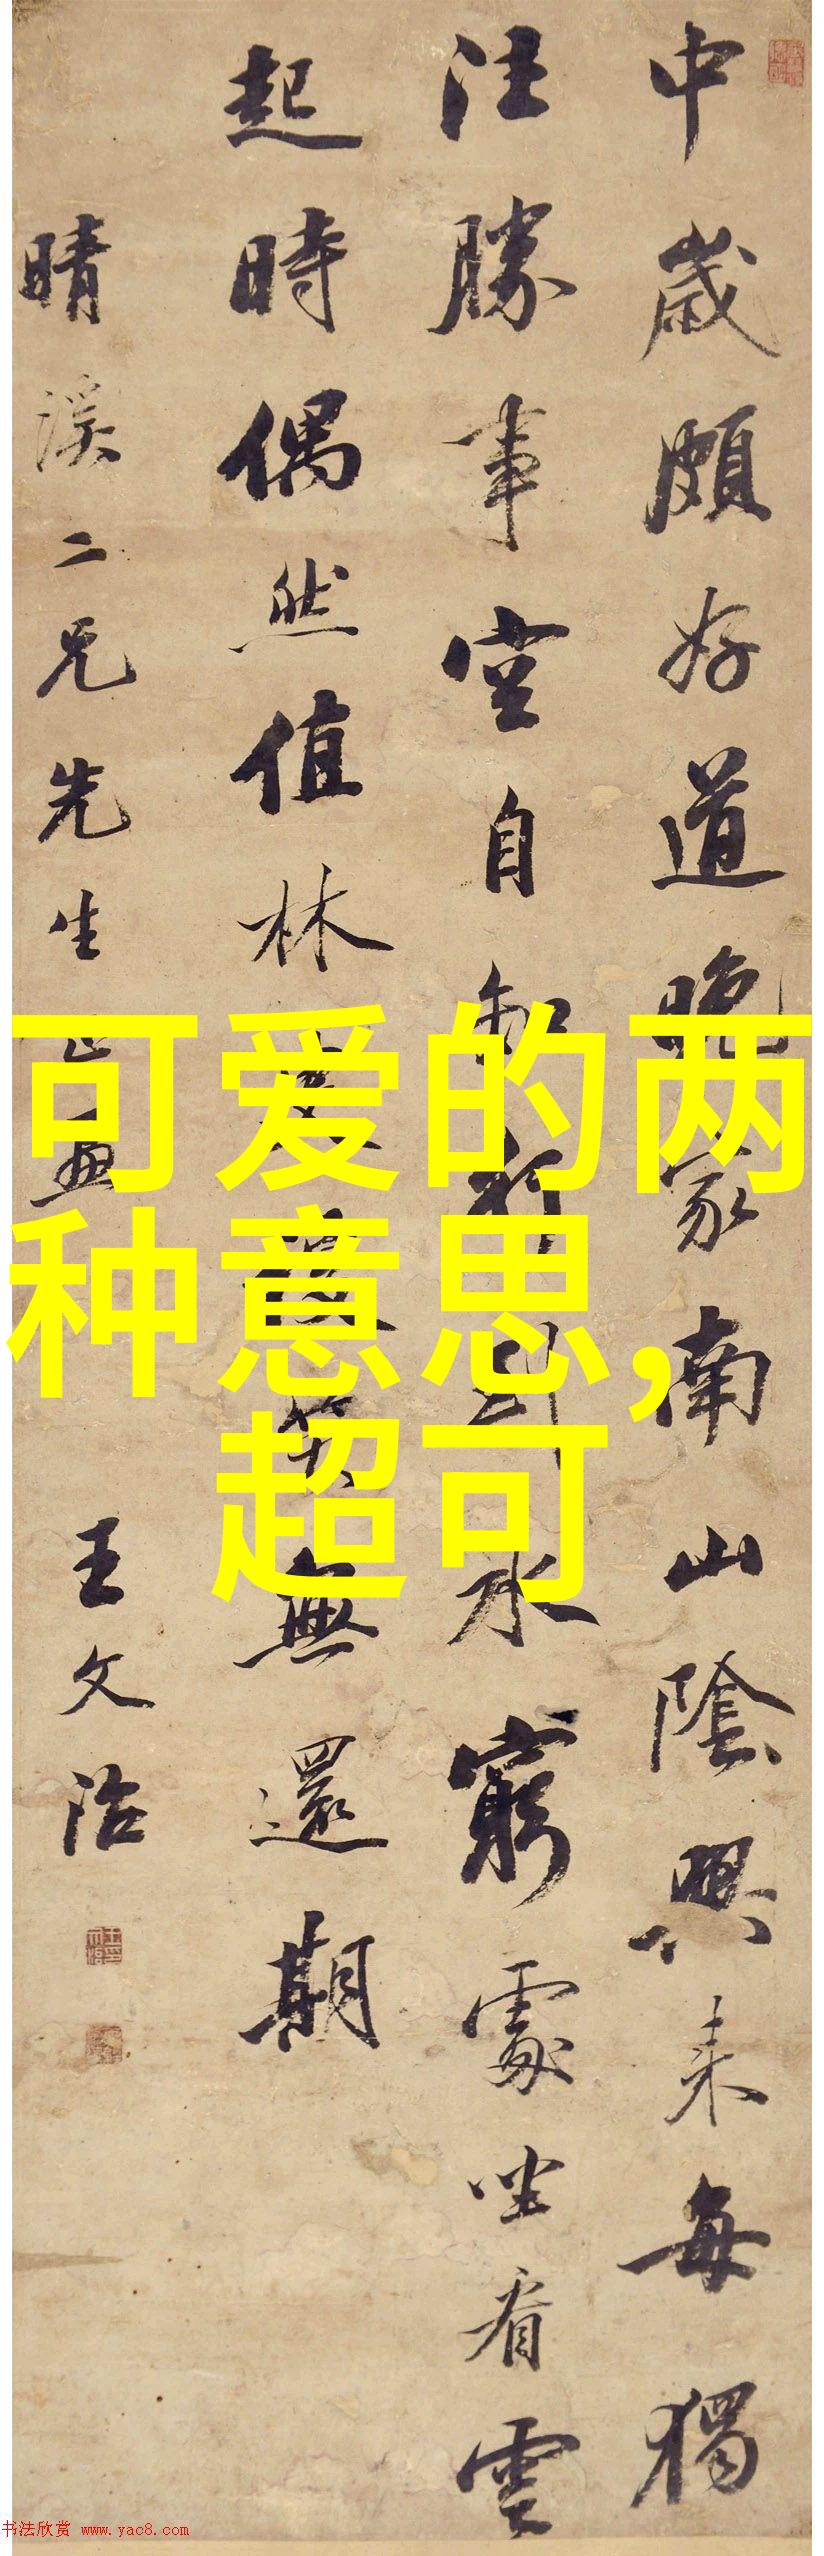 中歲頗好道晚家南山陰興來每獨
往勝事空自知行到水窮處坐看雲
起時偶然值林叟談笑無還期
晴溪二兄先生
王文治
可爱的两
种意思,
超可
书法欣赏 www.yac8.com